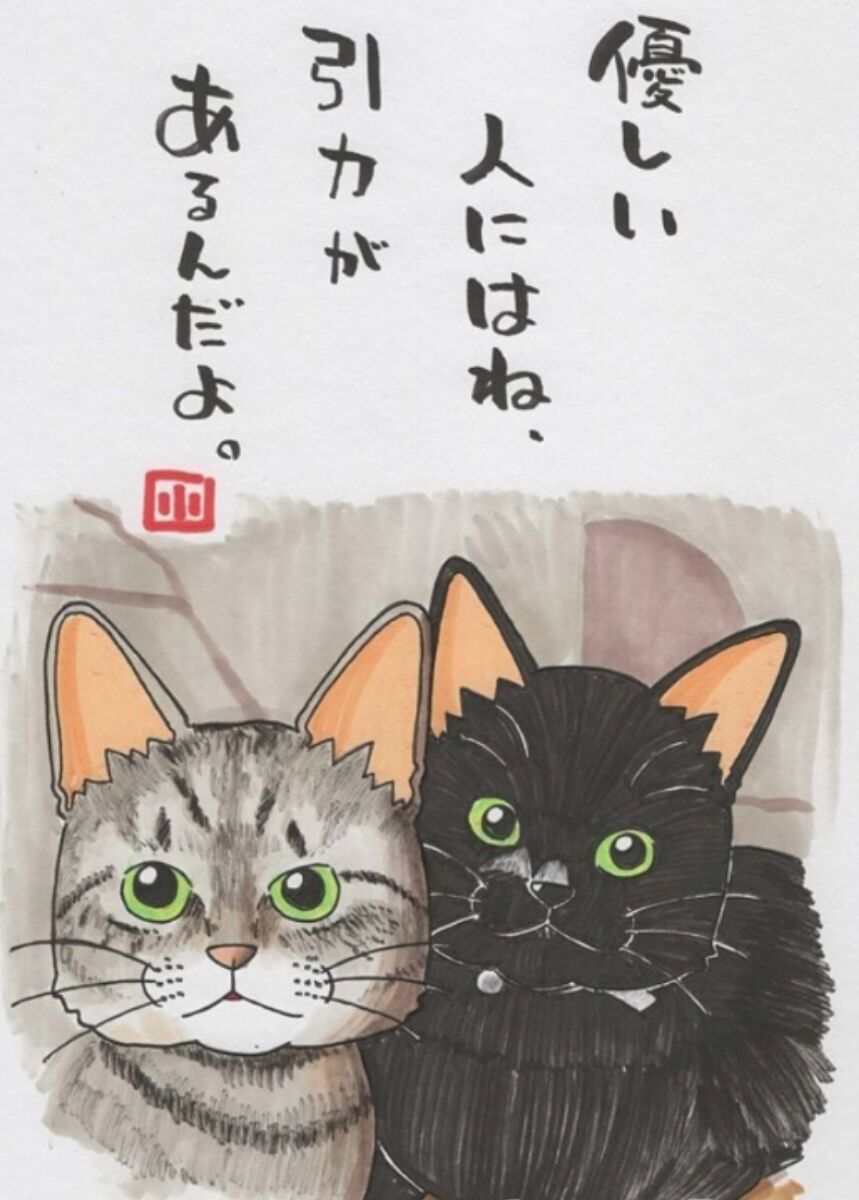 優しい
人にはね、
引力が
あるんだよ。